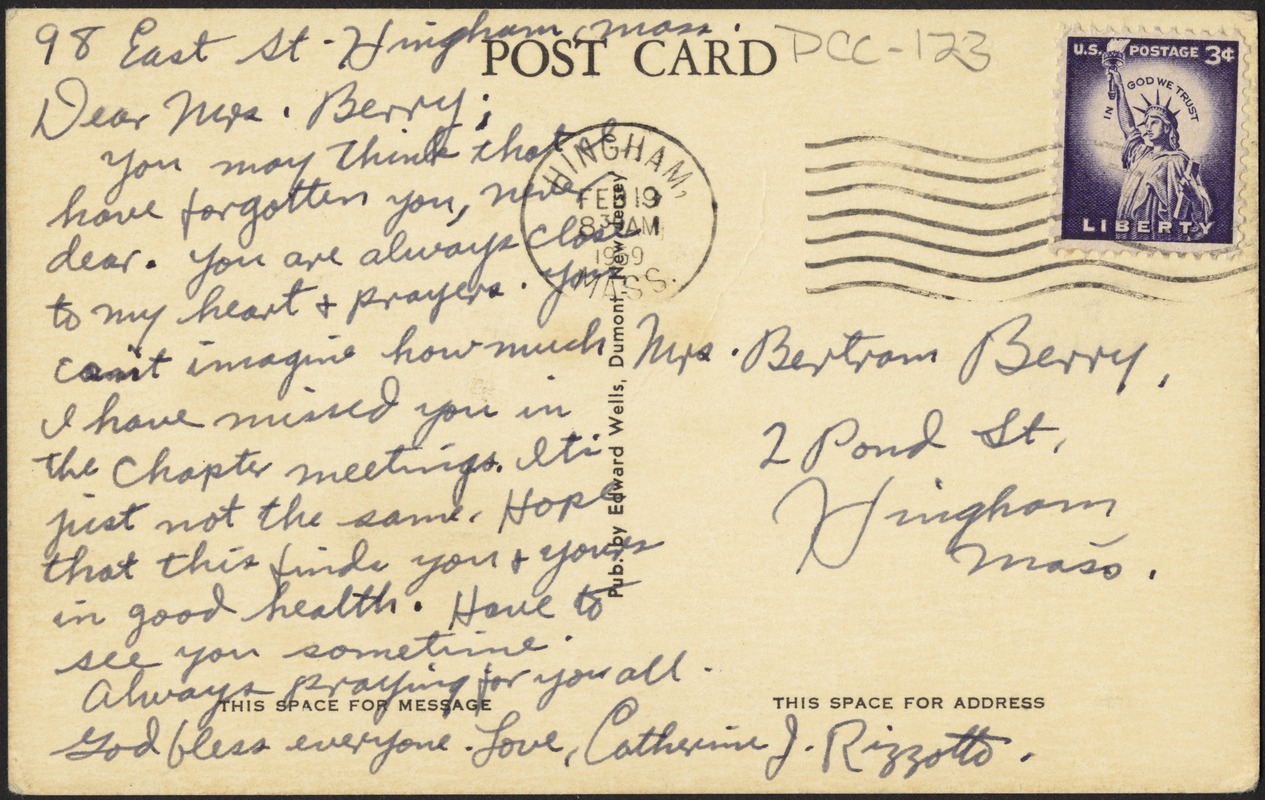 98 East St. Hingham, Mass.
POST CARD
DCC-123
Dear Mrs. Berry;
You may think that I
have forgotten you, never
dear. You are always close
to my heart & prayers. You
can't imagine how much
I have missed you in
the Chapter meetings. It's
just not the same. Hope
that this finds you & yours
in good health. Have to
see you sometime.
Always praying for you all.
God bless everyone. Love, Catherine J. Rizzotto.
THIS SPACE FOR MESSAGE
Pub. by Edward Wells, Dumont, New Jersey
HINGHAM,
FEB 19
8 30 AM
1959
MASS.
U.S. POSTAGE 3¢
IN GOD WE TRUST
LIBERTY
Mrs. Bertram Berry,
2 Pond St,
Hingham
Mass.
THIS SPACE FOR ADDRESS